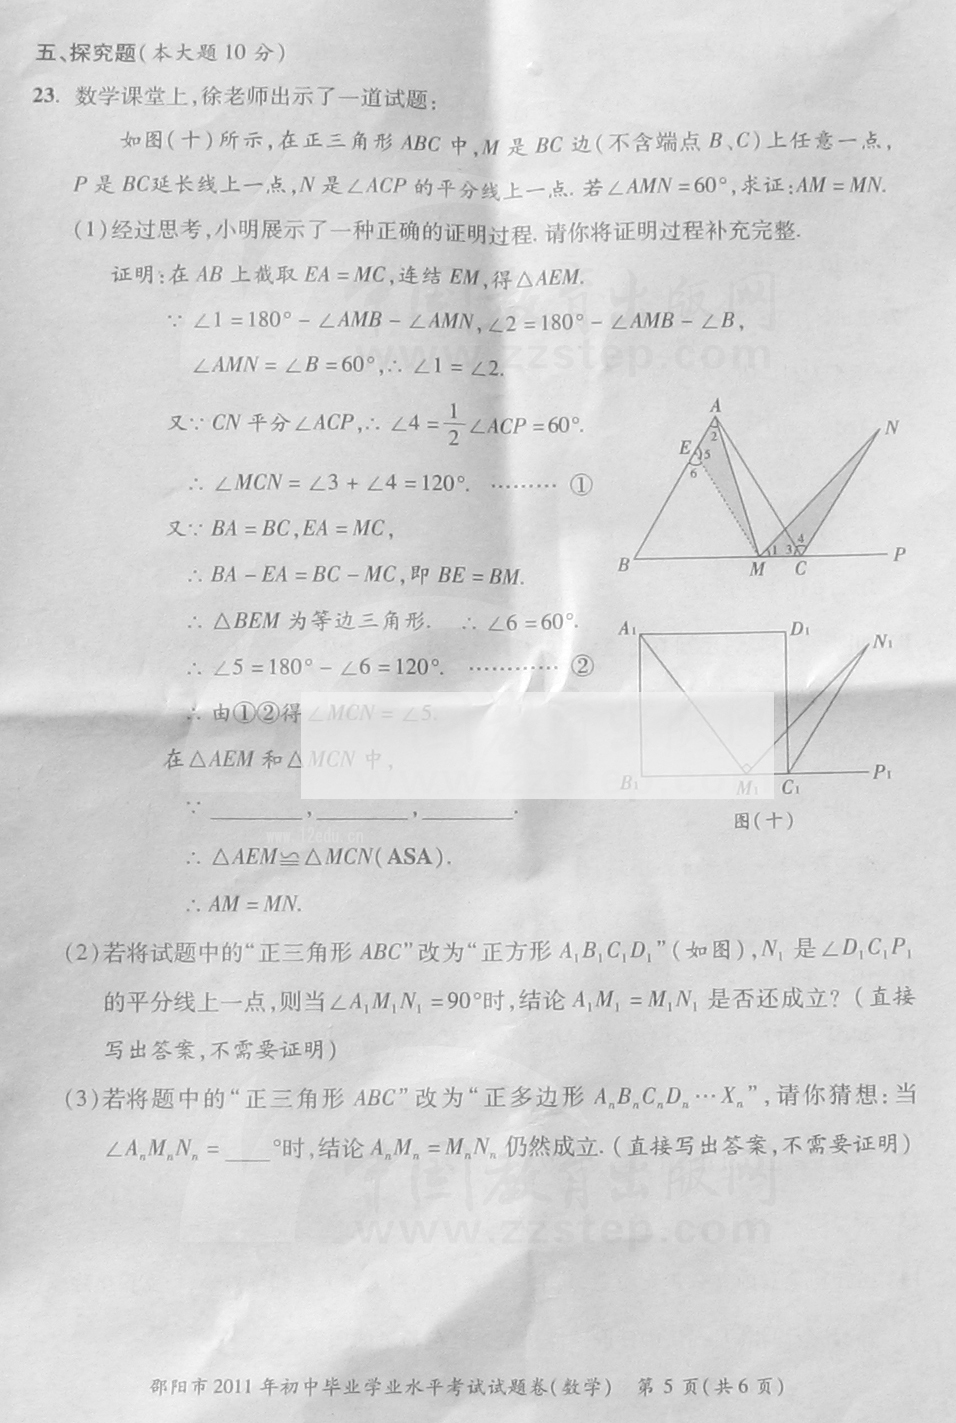 五、探究题(本大题10分)
23. 数学课堂上,徐老师出示了一道试题:
如图(十)所示,在正三角形ABC中,M是BC边(不含端点B、C)上任意一点,
P是BC延长线上一点,N是∠ACP的平分线上一点.若∠AMN=60°,求证:AM=MN.
(1)经过思考,小明展示了一种正确的证明过程.请你将证明过程补充完整.
证明:在AB上截取EA=MC,连结EM,得△AEM.
∵∠1=180°-∠AMB-∠AMN,∠2=180°-∠AMB-∠B,
∠AMN=∠B=60°,∴∠1=∠2.
又∵CN平分∠ACP,∴∠4=1/2∠ACP=60°.
∴∠MCN=∠3+∠4=120°. ……… ①
又∵BA=BC,EA=MC,
∴BA-EA=BC-MC,即BE=BM.
∴△BEM为等边三角形. ∴∠6=60°.
∴∠5=180°-∠6=120°. ………… ②
∴由①②得∠MCN=∠5.
在△AEM和△MCN中,
∵ ________,________,________.
∴△AEM≌△MCN(ASA).
∴AM=MN.
A
N
E
2
5
6
B
M
C
P
1
3
4
A₁
D₁
N₁
B₁
M₁
C₁
P₁
图(十)
(2)若将试题中的“正三角形ABC”改为“正方形A₁B₁C₁D₁”(如图),N₁是∠D₁C₁P₁
的平分线上一点,则当∠A₁M₁N₁=90°时,结论A₁M₁=M₁N₁是否还成立?(直接
写出答案,不需要证明)
(3)若将题中的“正三角形ABC”改为“正多边形AₙBₙCₙDₙ…Xₙ”,请你猜想:当
∠AₙMₙNₙ=____°时,结论AₙMₙ=MₙNₙ仍然成立.(直接写出答案,不需要证明)
中国教育出版网
www.zzstep.com
www.12edu.cn
中国教育出版网
www.zzstep.com
邵阳市2011年初中毕业学业水平考试试题卷(数学) 第5页(共6页)